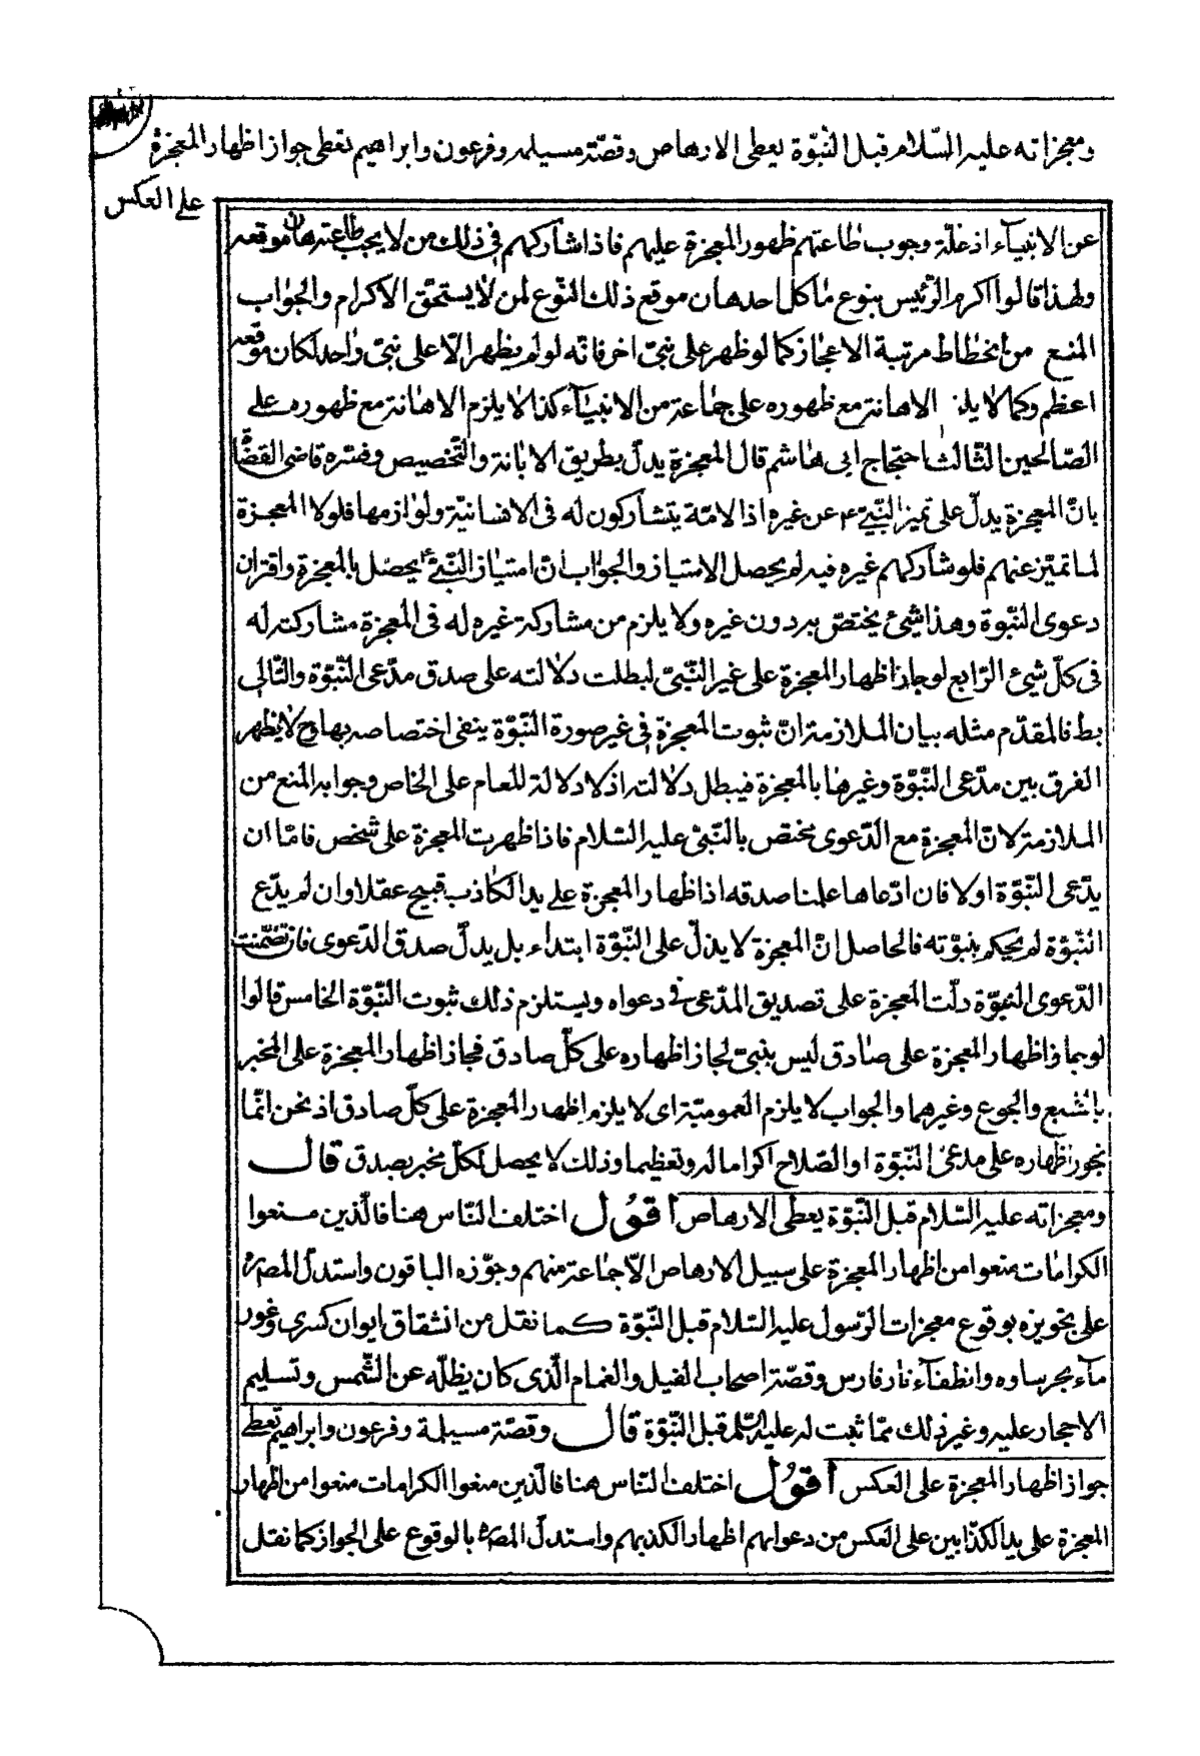 ومعجزاته عليه السّلام قبل النّبوّة يعطى الارهاص وقصّة مسيلمه وفرعون وابراهيم تعطى جواز اظهار المعجزة
على العكس
عن الانبيآء اذ علّة وجوب طاعتهم ظهور المعجزة عليهم فاذا شاركهم فى ذلك من لا يجب طاعته هان موقعه
ولهذا قالوا اكرم الرّئيس بنوع ما كل احد هان موقع ذلك النّوع لمن لا يستحقّ الاكرام والجواب
المنع من انحطاط مرتبة الاعجاز كما لو ظهر على نبىّ اخر فانّه لو لم يظهر الّا على نبىّ واحد لكان موقعه
اعظم وكما لا يلز الاهانة مع ظهوره على جماعة من الانبيآء كذا لا يلزم الاهانة مع ظهوره على
الصّالحين الثّالث احتجاج ابى هاشم قال المعجزة يدلّ بطريق الابانة والتّخصيص وفسّره قاضى القضّا
بانّ المعجزة يدلّ على تميز النّبىّ ع عن غيره اذ الامّة يتشاركون له فى الانسانيّة ولوازمها فلولا المعجزة
لما تميّز عنهم فلو شاركهم غيره فيه لم يحصل الامتياز والجواب انّ امتياز النّبىّ ع يحصل بالمعجزة واقتران
دعوى النّبوة وهذا شيئ يختصّ به دون غيره ولا يلزم من مشاركة غيره له فى المعجزة مشاركته له
فى كلّ شيئ الرّابع لو جاز اظهار المعجزة على غير النّبىّ لبطلت دلالته على صدق مدّعى النّبوّة والتّالى
بط فالمقدّم مثله بيان الملازمة انّ ثبوت المعجزة فى غير صورة النّبوّة ينفى اختصاصه بها وح لا يظهر
الفرق بين مدّعى النّبوّة وغيرها بالمعجزة فيبطل دلالته اذ لا دلالة للعام على الخاص وجوابه المنع من
الملازمة لانّ المعجزة مع الدّعوى مختص بالنّبىّ عليه السّلام فاذا ظهرت المعجزة على شخص فامّا ان
يدّعى النّبوّة اولا فان ادّعاها علمنا صدقه اذ اظهار المعجزة على يد الكاذب قبيح عقلا وان لم يدّع
النّبوّة لم يحكم بنبوّته فالحاصل انّ المعجزة لا يدلّ على النّبوّة ابتداء بل يدلّ صدق الدّعوى فان تضمّنت
الدّعوى النّبوّة دلّت المعجزة على تصديق المدّعى فى دعواه ويستلزم ذلك ثبوت النّبوّة الخامس قالوا
لو جاز اظهار المعجزة على صادق ليس بنبىّ لجاز اظهاره على كلّ صادق فجاز اظهار المعجزة على المخبر
بالشبع والجوع وغيرهما والجواب لا يلزم العموميّة اى لا يلزم اظهار المعجزة على كلّ صادق اذ نحن انّما
نجوز اظهاره على مدعى النّبوّة او الصّلاح اكراما له وتعظيما وذلك لا يحصل لكلّ مخبر بصدق قال
ومعجزاته عليه السّلام قبل النّبوّة يعطى الارهاص اقول اختلف النّاس هنا فالّذين منعوا
الكرامات منعوا من اظهار المعجزة على سبيل الارهاص الّا جماعة منهم وجوّزه الباقون واستدلّ المص ره
على تجويزه بوقوع معجزات الرّسول عليه السّلام قبل النّبوّة كما نقل من انشقاق ايوان كسرى وغور
مآء بحر ساوه وانطفآء نار فارس وقصّة اصحاب الفيل والغمام الّذى كان يظلّه عن الشّمس وتسليم
الاحجار عليه وغير ذلك ممّا ثبت له عليه السّلم قبل النّبوّة قال وقصّة مسيلمة وفرعون وابراهيم تعطى
جواز اظهار المعجزة على العكس اقول اختلف النّاس هنا فالّذين منعوا الكرامات منعوا من اظهار
المعجزة على يد الكذّابين على العكس من دعواهم اظهارا لكذبهم واستدلّ المص ره بالوقوع على الجواز كما نقل